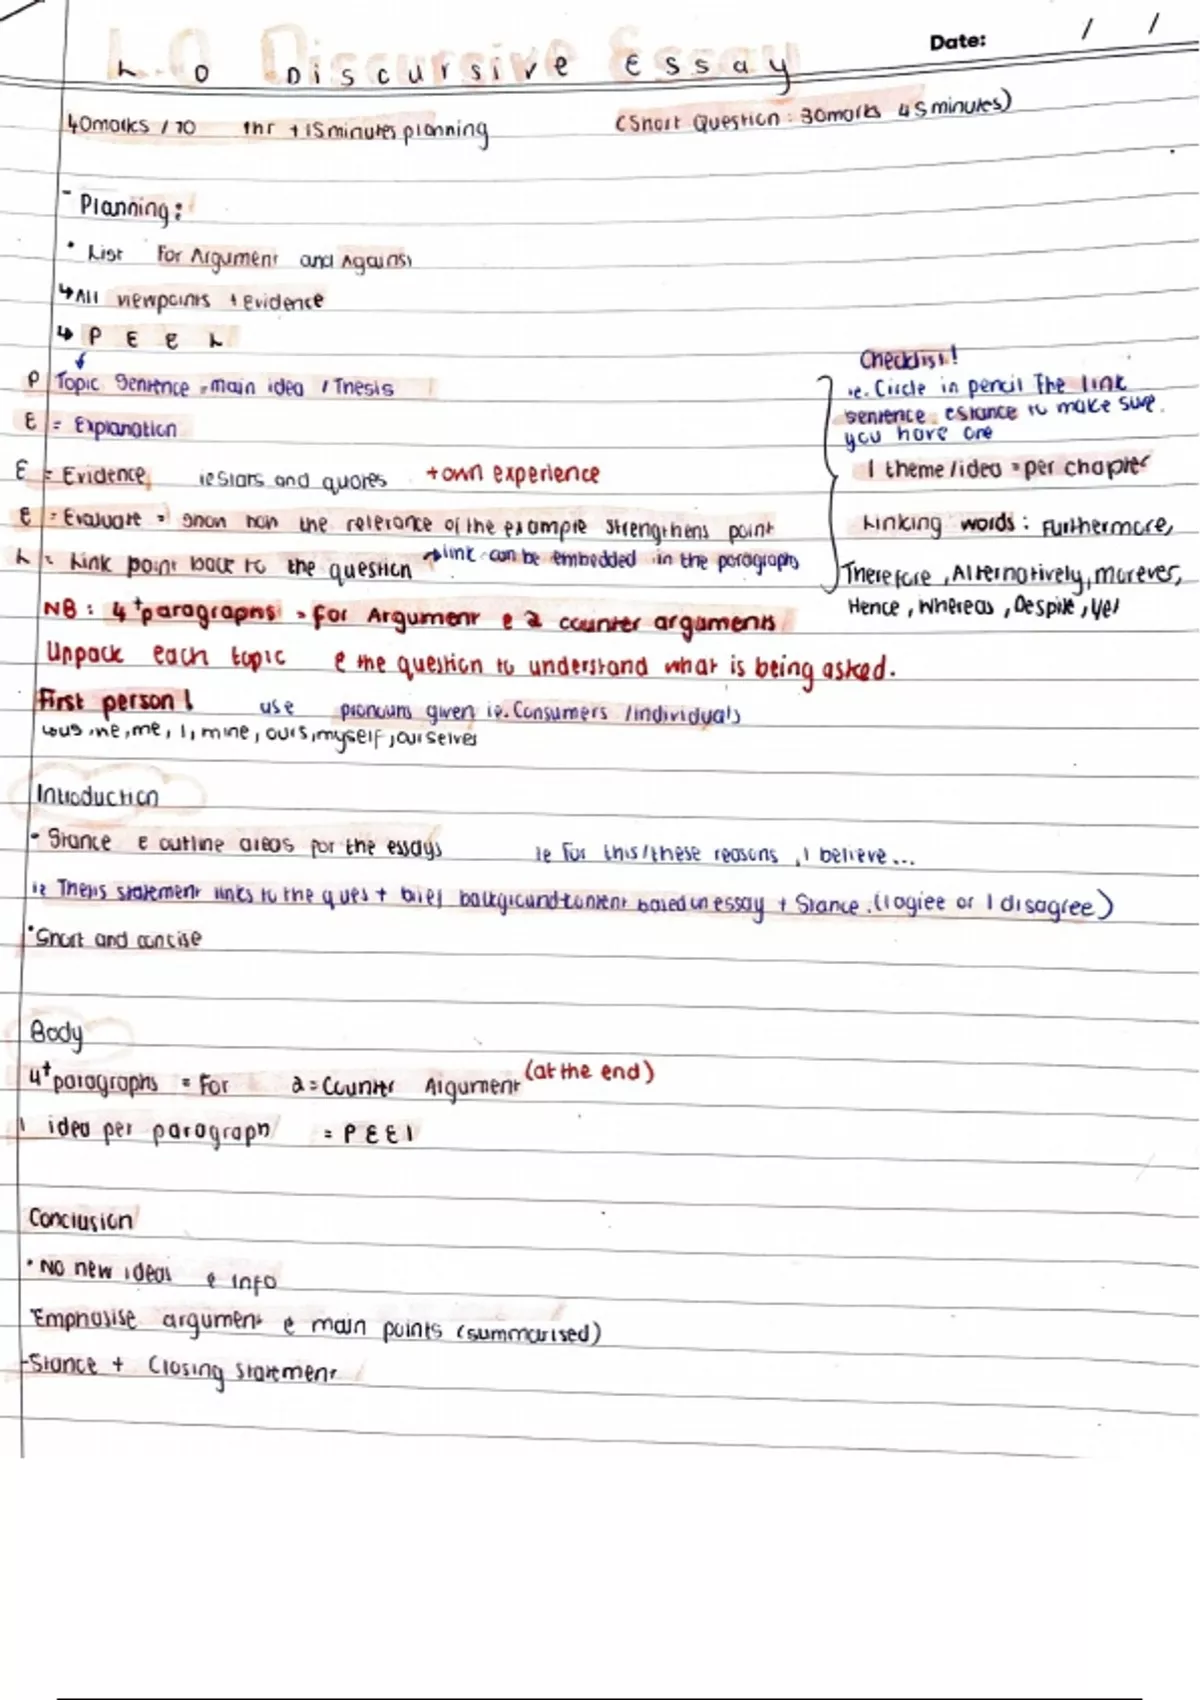 L.O Discursive Essay
Date: / /
L O Discursive Essay
40marks / 70 1hr + 15minutes planning (Short Question: 30marks 45minutes)
- Planning:
• List For Argument and Against
↳ All viewpoints + Evidence
↳ P E E L
P Topic Sentence = main idea / Thesis
E = Explanation
E = Evidence ie Stats and quotes + own experience
E = Evaluate = show how the relevance of the example strengthens point
L = Link point back to the question → link can be embedded in the paragraphs
Checklist!
ie. Circle in pencil The link
sentence & stance to make sure
you have one
1 theme/idea = per chapter
Linking words: Furthermore,
Therefore, Alternatively, morever,
Hence, Whereas, Despite, Yet
NB: 4+ paragraphs = For Argument & 2 counter arguments
Unpack each topic & the question to understand what is being asked.
First person! use pronouns given ie. Consumers / individuals
us, we, me, I, mine, ours, myself, ourselves
Introduction
- Stance & outline areas for the essays ie For this/these reasons, I believe...
ie Thesis statement links to the ques + brief background content based on essay + Stance. (I agree or I disagree)
• Short and concise
Body
4+ paragraphs = For 2 = Counter Argument (at the end)
1 idea per paragraph = PEEL
Conclusion
• No new ideas & info
• Emphasise argument & main points (summarised)
- Stance + Closing statement